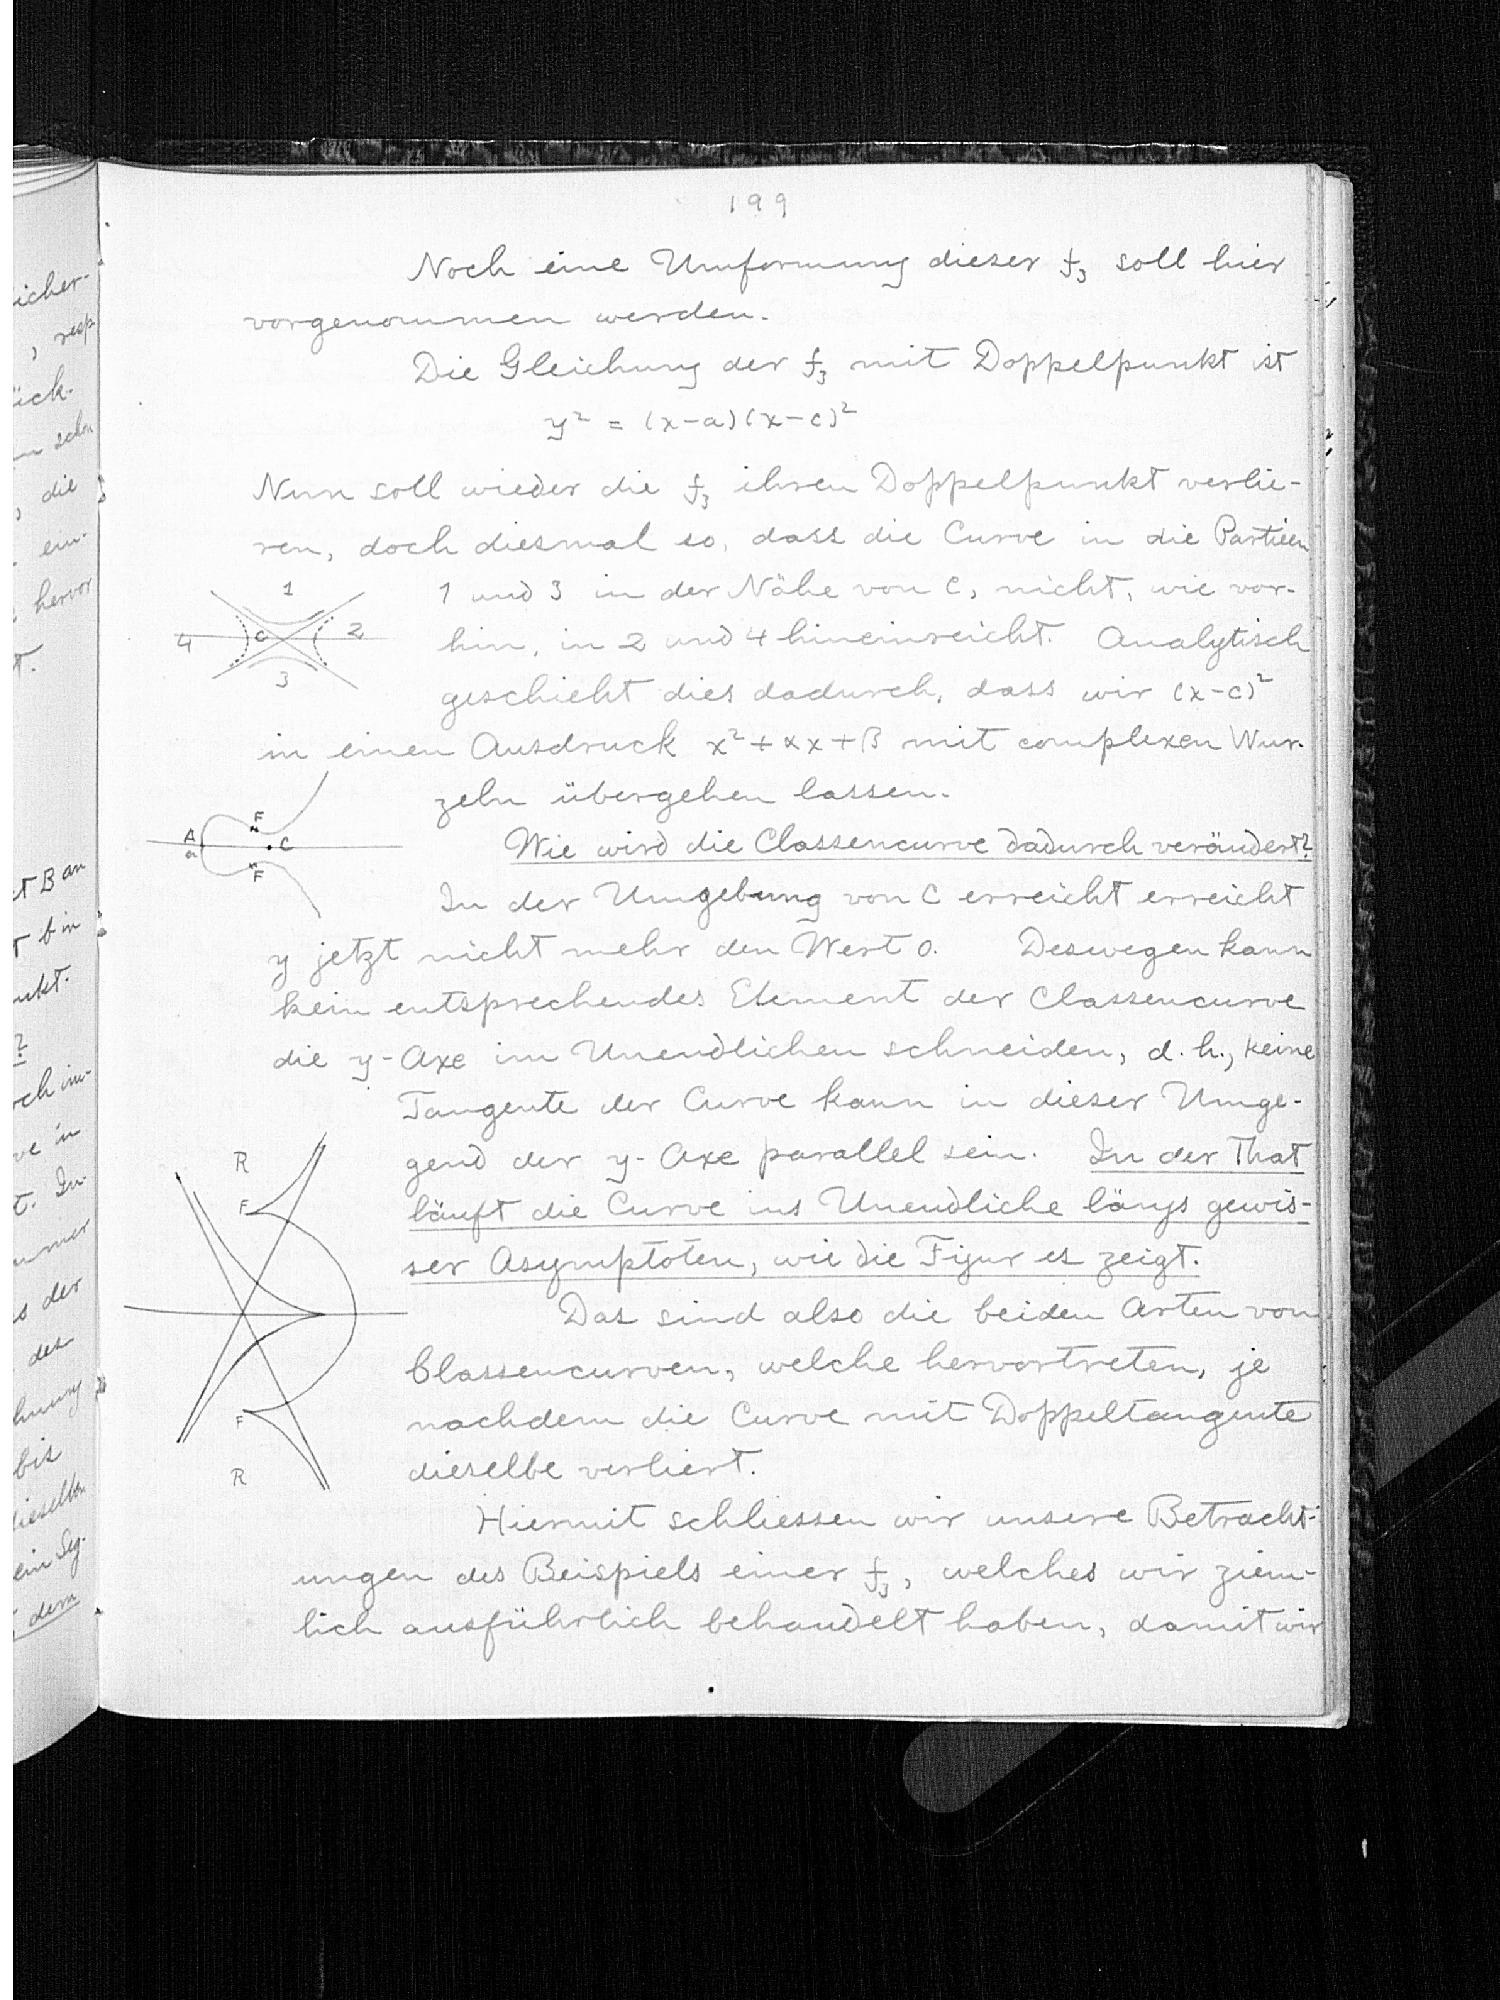 199
Noch eine Umformung dieser f₃ soll hier
vorgenommen werden.
Die Gleichung der f₃ mit Doppelpunkt ist
y² = (x-a)(x-c)²
Nun soll wieder die f₃ ihren Doppelpunkt verlie-
ren, doch diesmal so, dass die Curve in die Partieen
1 und 3 in der Nähe von C, nicht, wie vor-
hin, in 2 und 4 hineinreicht. Analytisch
geschieht dies dadurch, dass wir (x-c)²
in einen Ausdruck x²+αx+β mit complexen Wur-
zeln übergehen lassen.
Wie wird die Classencurve dadurch verändert?
In der Umgebung von C erreicht erreicht
y jetzt nicht mehr den Wert 0. Deswegen kann
kein entsprechendes Element der Classencurve
die y-Axe im Unendlichen schneiden, d.h., keine
Tangente der Curve kann in dieser Umge-
gend der y-Axe parallel sein. In der That
läuft die Curve ins Unendliche längs gewis-
ser Asymptoten, wie die Figur es zeigt.
Das sind also die beiden Arten von
Classencurven, welche hervortreten, je
nachdem die Curve mit Doppeltangente
dieselbe verliert.
Hiermit schliessen wir unsere Betracht-
ungen des Beispiels einer f₃, welches wir ziem-
lich ausführlich behandelt haben, damit wir
1
4 C 2
3
F
A C
a
F
R
F
F
R
icher-
, resp.
ück-
schon
, die
ein-
hervor
t.
et B an
t b in
nkt.
?
rch im-
ve in
t. In
immer
s der
der
hnung
bis
dieselben
ein Seg-
dem